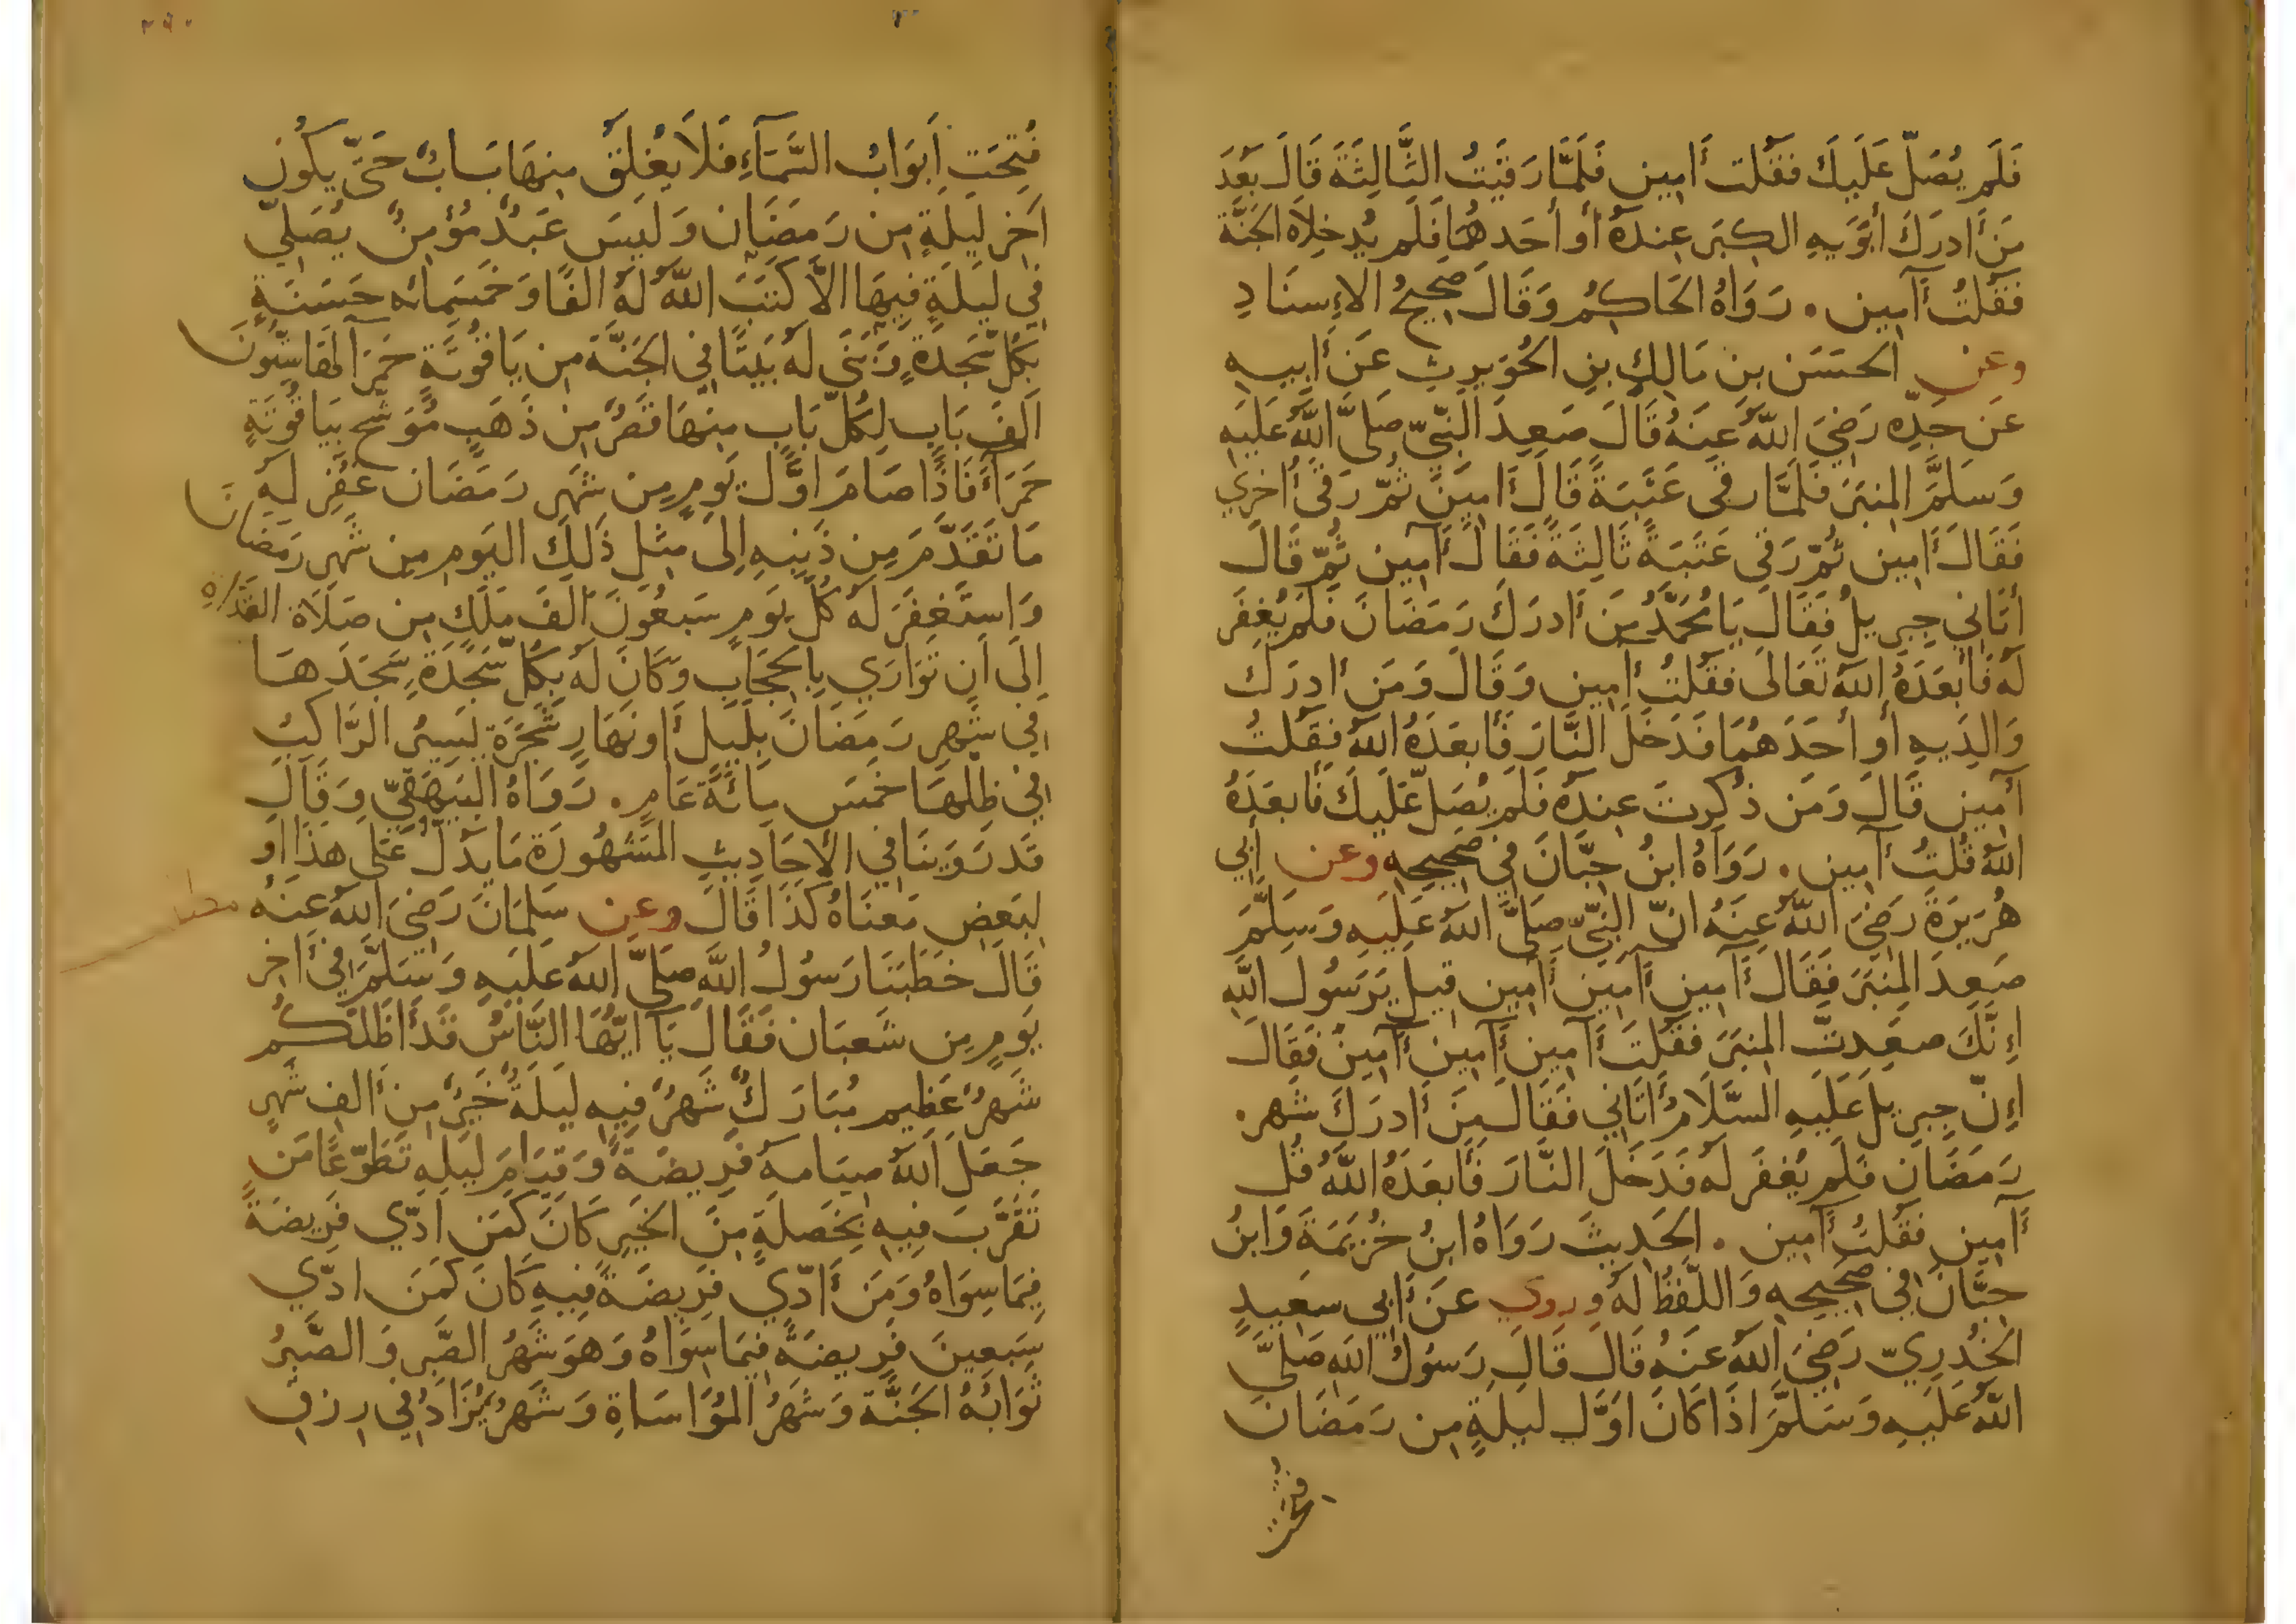 فَلَم يُصَلِّ عَلَيكَ فَقُلت أَمِين فَلَمَّا رَقَيْتُ الثَّالِثَةَ قَالَ بَعُدَ
مَن أَدرَكَ أَبَوَيهِ الكِبَر عِندَهُ أَو أَحَدهُمَا فَلَم يُدخِلَاهُ الجَنَّة
فَقُلتُ آمِين . رَوَاهُ الحَاكِمُ وَقَالَ صَحِيحُ الاِسنَادِ
وعن الحسَن بن مَالِكِ بنِ الحُوَيرِثِ عَن أَبِيهِ
عَن جَدِّه رَضِيَ اللَّهُ عَنهُ قَالَ صَعِدَ النَّبِيّ صَلَّى اللَّهُ عَلَيهِ
وَسَلَّمَ المِنبَرَ فَلَمَّا رقى عَتَبَةً قَالَ أَمِين ثُمّ رَقى أُخرَي
فَقَالَ أَمِين ثُمّ رَقى عَتَبَةً ثَالِثَةً فَقَالَ آمِين ثُمّ قَالَ
أَتَانِي جِبرِيلُ فَقَالَ يَا مُحَمَّدُ مَن أَدرَكَ رَمَضَانَ فَلَم يُغفَر
لَهُ فَأَبعَدَهُ اللَّهُ تَعَالَى فَقُلتُ أَمِين وَقَالَ وَمَن أَدرَكَ
وَالِدَيهِ أَو أَحَدَهُمَا فَدَخَلَ النَّارَ فَأَبعَدَهُ اللَّهُ فَقُلتُ
آمِين قَالَ وَمَن ذُكِرتَ عِندَهُ فَلَم يُصَلِّ عَلَيكَ فَأَبعَدَهُ
اللَّهُ قُلتُ آمِين . رَوَاهُ ابنُ حِبَّانَ فِي صَحِيحِهِ وعن أَبِي
هُرَيرَةَ رَضِيَ اللَّهُ عَنهُ انّ النَّبِيّ صَلَّى اللَّهُ عَلَيهِ وَسَلَّمَ
صَعِدَ المِنبَرَ فَقَالَ آمِين أَمِين أَمِين قِيلَ يَرَسُولَ اللَّهِ
اِنَّكَ صَعِدتَ المِنبَرَ فَقُلتَ آمِين آمِين آمِين فَقَالَ
اِنّ جِبرِيلَ عَلَيهِ السَّلَامُ أَتَانِي فَقَالَ مَن أَدرَكَ شَهر
رَمَضَان فَلَم يُغفَر لَهُ فَدَخَلَ النَّارَ فَأَبعَدَهُ اللَّهُ قُل
آمِين فَقُلتُ آمِين . الحَدِيثَ رَوَاهُ ابنُ خُزَيمَةَ وَابنُ
حِبَّانَ فِي صَحِيحِهِ وَاللَّفظُ لَهُ وروي عَن أَبِي سعِيدٍ
الخُدرِيّ رَضِيَ اللَّهُ عَنهُ قَالَ قَالَ رَسُولُ اللَّهِ صَلَّى
اللَّهُ عَلَيهِ وَسَلَّمَ اذَا كَانَ اوَّل ليلَةٍ مِن رَمَضَانَ
فتحت
فُتِحَتِ أَبوَابُ السَّمَآءِ فَلَا يُغلَقُ مِنهَا بَابٌ حَتَّى يَكُون
اخِر لَيلَةٍ مِن رَمَضَان وَلَيسَ عَبدٌ مُؤمِنٌ يُصَلِّي
فِي لَيلَةٍ فِيهَا الاَّ كَتَبَ اللَّهُ لَهُ الفًا وَخَمسَمائه حَسَنَةٍ
بكُلِّ سَجدَةٍ وَبَنَى لَهُ بَيتًا فِي الجَنَّة مِن يَاقُوتَةٍ حَمرَآ لَهَا سِتُّونَ
اَلفَ بَابٍ لِكُلِّ بَابٍ مِنهَا قَصرٌ مِن ذَهَبٍ مُوَشَّحٍ بِيَاقُوتَةٍ
حَمرَآءَ فَاذَا صَامَ اوَّلَ يَومٍ مِن شَهر رَمَضَان غُفِر لَهُ
مَا تَقَدَّمَ مِن ذَنبِهِ اِلَى مِثلِ ذَلِكَ اليَومِ مِن شَهرِ رَمَضَانَ
وَاستَغفَرَ لَهُ كُلَّ يَومٍ سَبعُونَ اَلفَ مَلَكٍ مِن صَلَاة الغَدَاهِ
اِلَى اَن تَوَارَي بِالحِجَابِ وَكَانَ لَهُ بِكُلِّ سَجدَةٍ سَجَدَهَا
فِي شَهرِ رَمَضَانَ بِلَيلٍ أَو نَهَارٍ شَجَرَة يَسِيرُ الرَّاكِبُ
فِي ظِلِّهَا خَمسَ مِائَةَ عَامٍ . رَوَاهُ البَيهَقِيّ وَقَالَ
قَد رَوَينَا فِي الأَحَادِيثِ المَشهُورَة مَا يَدُلُّ عَلَى هَذَا او
لِبَعضِ مَعنَاهُ كَذَا قَالَ وعن سَلمَانَ رَضِيَ اللَّهُ عَنهُ
قَالَ خَطَبَنَا رَسُولُ اللَّهِ صَلَّى اللَّهُ عَلَيهِ وَسَلَّمَ فِي أَخِر
يَومٍ مِن شَعبَان فَقَالَ يَآ اَيُّهَا النَّاسُ قَد أَظَلَّكُم
شَهرٌ عَظِيم مُبَارَكٌ شَهرٌ فِيهِ لَيلَةٌ خَيرٌ مِن أَلفِ شَهرٍ
جَعَلَ اللَّهُ صِيَامَهُ فَرِيضَةً وَقِيَامَ لَيلِهِ تَطَوّعًا مَن
تَقَرَّبَ فِيهِ بِخَصلَةٍ مِنَ الخَيرِ كَانَ كَمَن ادّي فَرِيضَةً
فِيمَا سِوَاهُ وَمَن أَدّي فَرِيضَةً فِيهِ كَانَ كَمَن ادّي
سَبعِينَ فَرِيضَةً فِيمَا سِوَاهُ وَهوَ شَهرُ الصَّبرِ وَالصَّبرُ
ثَوَابُهُ الجَنَّة وَشَهرُ المُوَاسَاةِ وَشَهرٌ يُزَادُ فِي رِزق